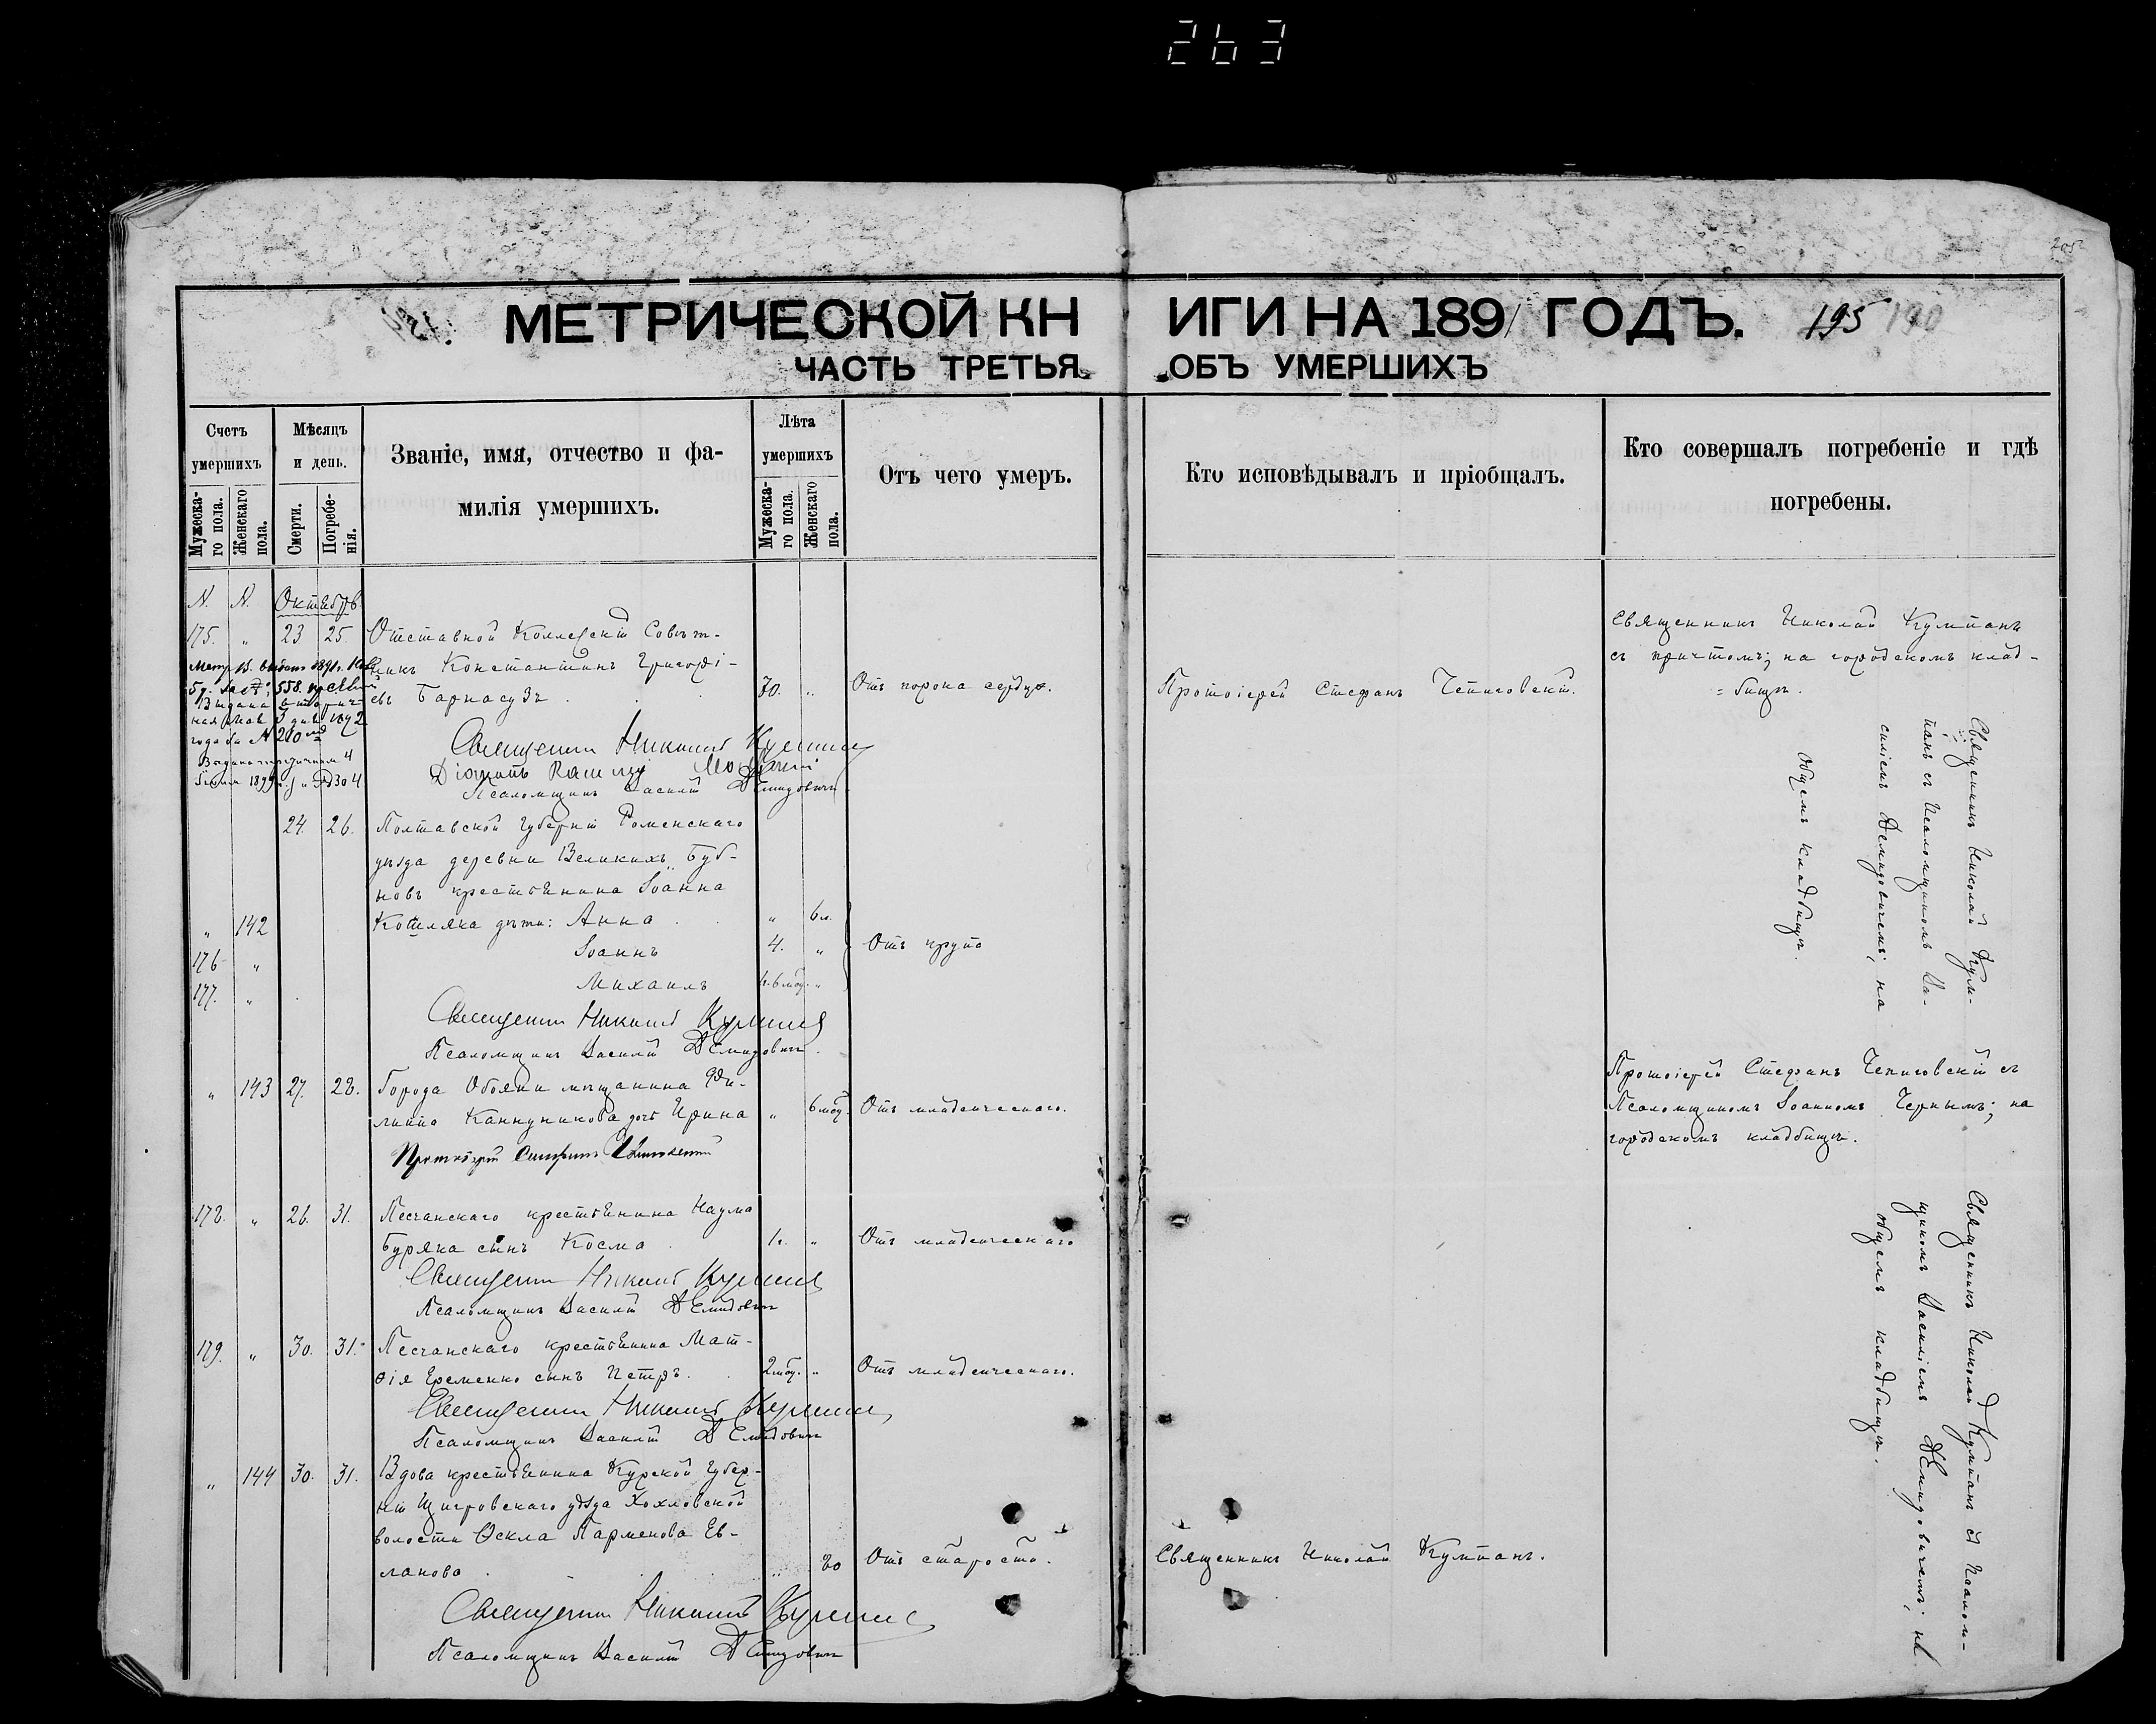 263
202
МЕТРИЧЕСКОЙ КНИГИ НА 1891 ГОДЪ. 195 190
ЧАСТЬ ТРЕТЬЯ. ОБЪ УМЕРШИХЪ
Счетъ умершихъ
Мужеска-го пола.
Женскаго пола.
Мѣсяцъ и день.
Смерти.
Погребе-нія.
Званіе, имя, отчество и фа-
милія умершихъ.
Лѣта умершихъ
Мужеска-го пола.
Женскаго пола.
Отъ чего умеръ.
Кто исповѣдывалъ и пріобщалъ.
Кто совершалъ погребеніе и гдѣ
погребены.
N. N. Октябрь
175. „ 23 25. Отставной Коллежскій Совѣт-
никъ Константинъ Григорі-
евъ Барнасузъ 70. „ Отъ порока сердца. Протоіерей Стефанъ Чепиговскій.
Священникъ Николай Кумпанъ
съ причтомъ; на городскомъ клад-
=бищѣ.
Священникъ Николай Кумпанъ
Псаломщикъ Василій Демидовичъ
24. 26. Полтавской Губерніи Роменскаго
уѣзда деревни Великихъ Буб-
новъ крестьянина Іоанна
„ 142 Котляка дѣти: Анна „ 6 л.
176 „ Іоаннъ 4. „ Отъ крупа
177. „ Михаилъ 1 г. 6 мѣс. „
Священникъ Николай Кум-
панъ съ Псаломщикомъ Ва-
силіемъ Демидовичемъ; на
общемъ кладбищѣ.
Священникъ Николай Кумпанъ
Псаломщикъ Василій Демидовичъ.
„ 143 27. 28. Города Обояни мѣщанина Фи-
липпа Каннуникова дочь Ирина „ 6 мѣс. Отъ младенческаго.
Протоіерей Стефанъ Чепиговскій съ
Псаломщикомъ Іоанномъ Чернымъ; на
городскомъ кладбищѣ.
Протоіерей Стефанъ Чепиговскій
178. „ 26. 31. Песчанскаго крестьянина Наума
Буряка сынъ Косма 1 г. „ Отъ младенческаго
Священникъ Николай Кумпанъ
Псаломщикъ Василій Демидовичъ
179. „ 30. 31. Песчанскаго крестьянина Мат-
ѳія Еременко сынъ Петръ. 2 мѣс. „ Отъ младенческаго.
Священникъ Николай Кумпанъ
Псаломщикъ Василій Демидовичъ
Священникъ Николай Кумпанъ съ Псалом-
щикомъ Василіемъ Демидовичемъ; на
общемъ кладбищѣ.
„ 144 30. 31. Вдова крестьянина Курской Губер-
ніи Щигровскаго уѣзда Хохловской
волости Ѳекла Парменова Ев-
ланова „ 80 Отъ старости. Священникъ Николай Кумпанъ.
Священникъ Николай Кумпанъ
Псаломщикъ Василій Демидовичъ